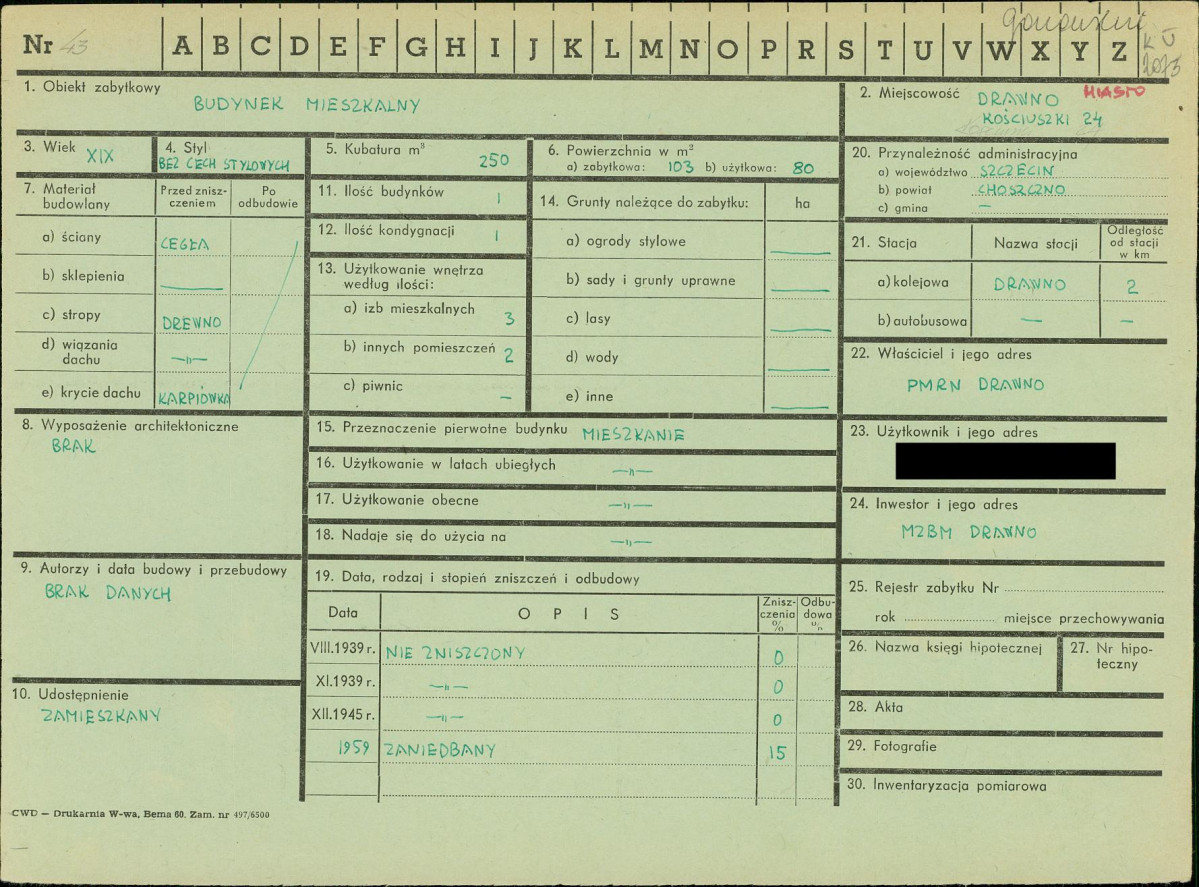 Nr 43 A B C D E F G H I J K L M N O P R S T U V W X Y Z
1. Obiekt zabytkowy
BUDYNEK MIESZKALNY
2. Miejscowość DRAWNO MIASTO
KOŚCIUSZKI 24
3. Wiek XIX
4. Styl
BEZ CECH STYLOWYCH
5. Kubatura m³ 250
6. Powierzchnia w m²
a) zabytkowa: 103 b) użytkowa: 80
20. Przynależność administracyjna
a) województwo SZCZECIN
b) powiat CHOSZCZNO
c) gmina —
7. Materiał budowlany
Przed znisz-
czeniem
Po
odbudowie
a) ściany CEGŁA
b) sklepienia —
c) stropy DREWNO
d) wiązania
dachu —"—
e) krycie dachu KARPIÓWKA
11. Ilość budynków 1
12. Ilość kondygnacji 1
13. Użytkowanie wnętrza
według ilości:
a) izb mieszkalnych 3
b) innych pomieszczeń 2
c) piwnic —
14. Grunty należące do zabytku: ha
a) ogrody stylowe —
b) sady i grunty uprawne —
c) lasy —
d) wody —
e) inne —
21. Stacja Nazwa stacji
Odległość
od stacji
w km
a) kolejowa DRAWNO 2
b) autobusowa — —
22. Właściciel i jego adres
PMRN DRAWNO
8. Wyposażenie architektoniczne
BRAK
15. Przeznaczenie pierwotne budynku MIESZKANIE
16. Użytkowanie w latach ubiegłych —"—
17. Użytkowanie obecne —"—
18. Nadaje się do użycia na —"—
23. Użytkownik i jego adres
24. Inwestor i jego adres
MZBM DRAWNO
9. Autorzy i data budowy i przebudowy
BRAK DANYCH
10. Udostępnienie
ZAMIESZKANY
19. Data, rodzaj i stopień zniszczeń i odbudowy
Data O P I S
Znisz-
czenia
%
Odbu-
dowa
%
VIII.1939 r. NIE ZNISZCZONY 0
XI.1939 r. —"— 0
XII.1945 r. —"— 0
1959 ZANIEDBANY 15
25. Rejestr zabytku Nr
rok miejsce przechowywania
26. Nazwa księgi hipotecznej
27. Nr hipo-
teczny
28. Akta
29. Fotografie
30. Inwentaryzacja pomiarowa
CWD — Drukarnia W-wa, Bema 60. Zam. nr 497/6500